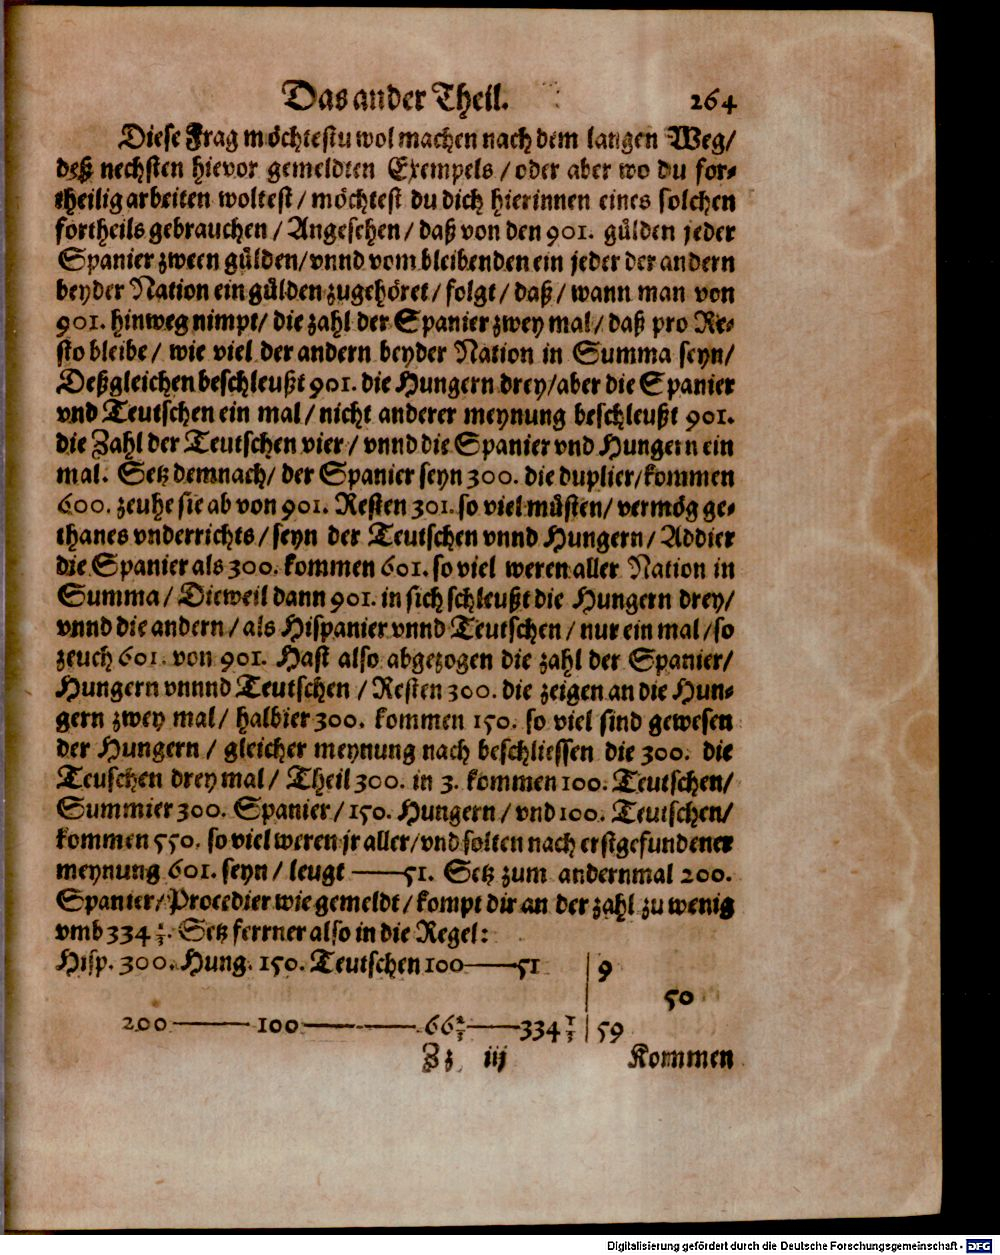 Das ander Theil. 264
Diese Frag möchtestu wol machen nach dem langen Weg/
deß nechsten hievor gemeldten Exempels / oder aber wo du for⸗
theilig arbeiten woltest / möchtest du dich hierinnen eines solchen
fortheils gebrauchen / Angesehen / daß von den 901. gülden jeder
Spanier zween gülden/ vnnd vom bleibenden ein jeder der andern
beyder Nation ein gülden zugehöret / folgt / daß / wann man von
901. hinweg nimpt/ die zahl der Spanier zwey mal / daß pro Re⸗
sto bleibe / wie viel der andern beyder Nation in Summa seyn/
Deßgleichen beschleußt 901. die Hungern drey/aber die Spanier
vnd Teutschen ein mal / nicht anderer meynung beschleußt 901.
die Zahl der Teutschen vier / vnnd die Spanier vnd Hungern ein
mal. Setz demnach/ der Spanier seyn 300. die duplier/kommen
600. zeuhe sie ab von 901. Resten 301. so viel müsten/ vermög ge⸗
thanes vnderrichts / seyn der Teutschen vnnd Hungern / Addier
die Spanier als 300. kommen 601. so viel weren aller Nation in
Summa / Dieweil dann 901. in sich schleußt die Hungern drey/
vnnd die andern / als Hispanier vnnd Teutschen / nur ein mal /so
zeuch 601. von 901. Hast also abgezogen die zahl der Spanier/
Hungern vnnnd Teutschen / Resten 300. die zeigen an die Hun⸗
gern zwey mal / halbier 300. kommen 150. so viel sind gewesen
der Hungern / gleicher meynung nach beschliessen die 300. die
Teuschen drey mal / Theil 300. in 3. kommen 100. Teutschen/
Summier 300. Spanier / 150. Hungern / vnd 100. Teutschen/
kommen 550. so viel weren jr aller/vnd solten nach erstgefundener
meynung 601. seyn / leugt ——51. Setz zum andernmal 200.
Spanier/ Procedier wie gemeldt / kompt dir an der zahl zu wenig
vmb 334 1/3. Setz ferrner also in die Regel:
Hisp. 300. Hung. 150. Teutschen 100——51 | 9
50
200——100——66 2/3——334 1/3 | 59
Zz iij Kommen
Digitalisierung gefördert durch die Deutsche Forschungsgemeinschaft - DFG